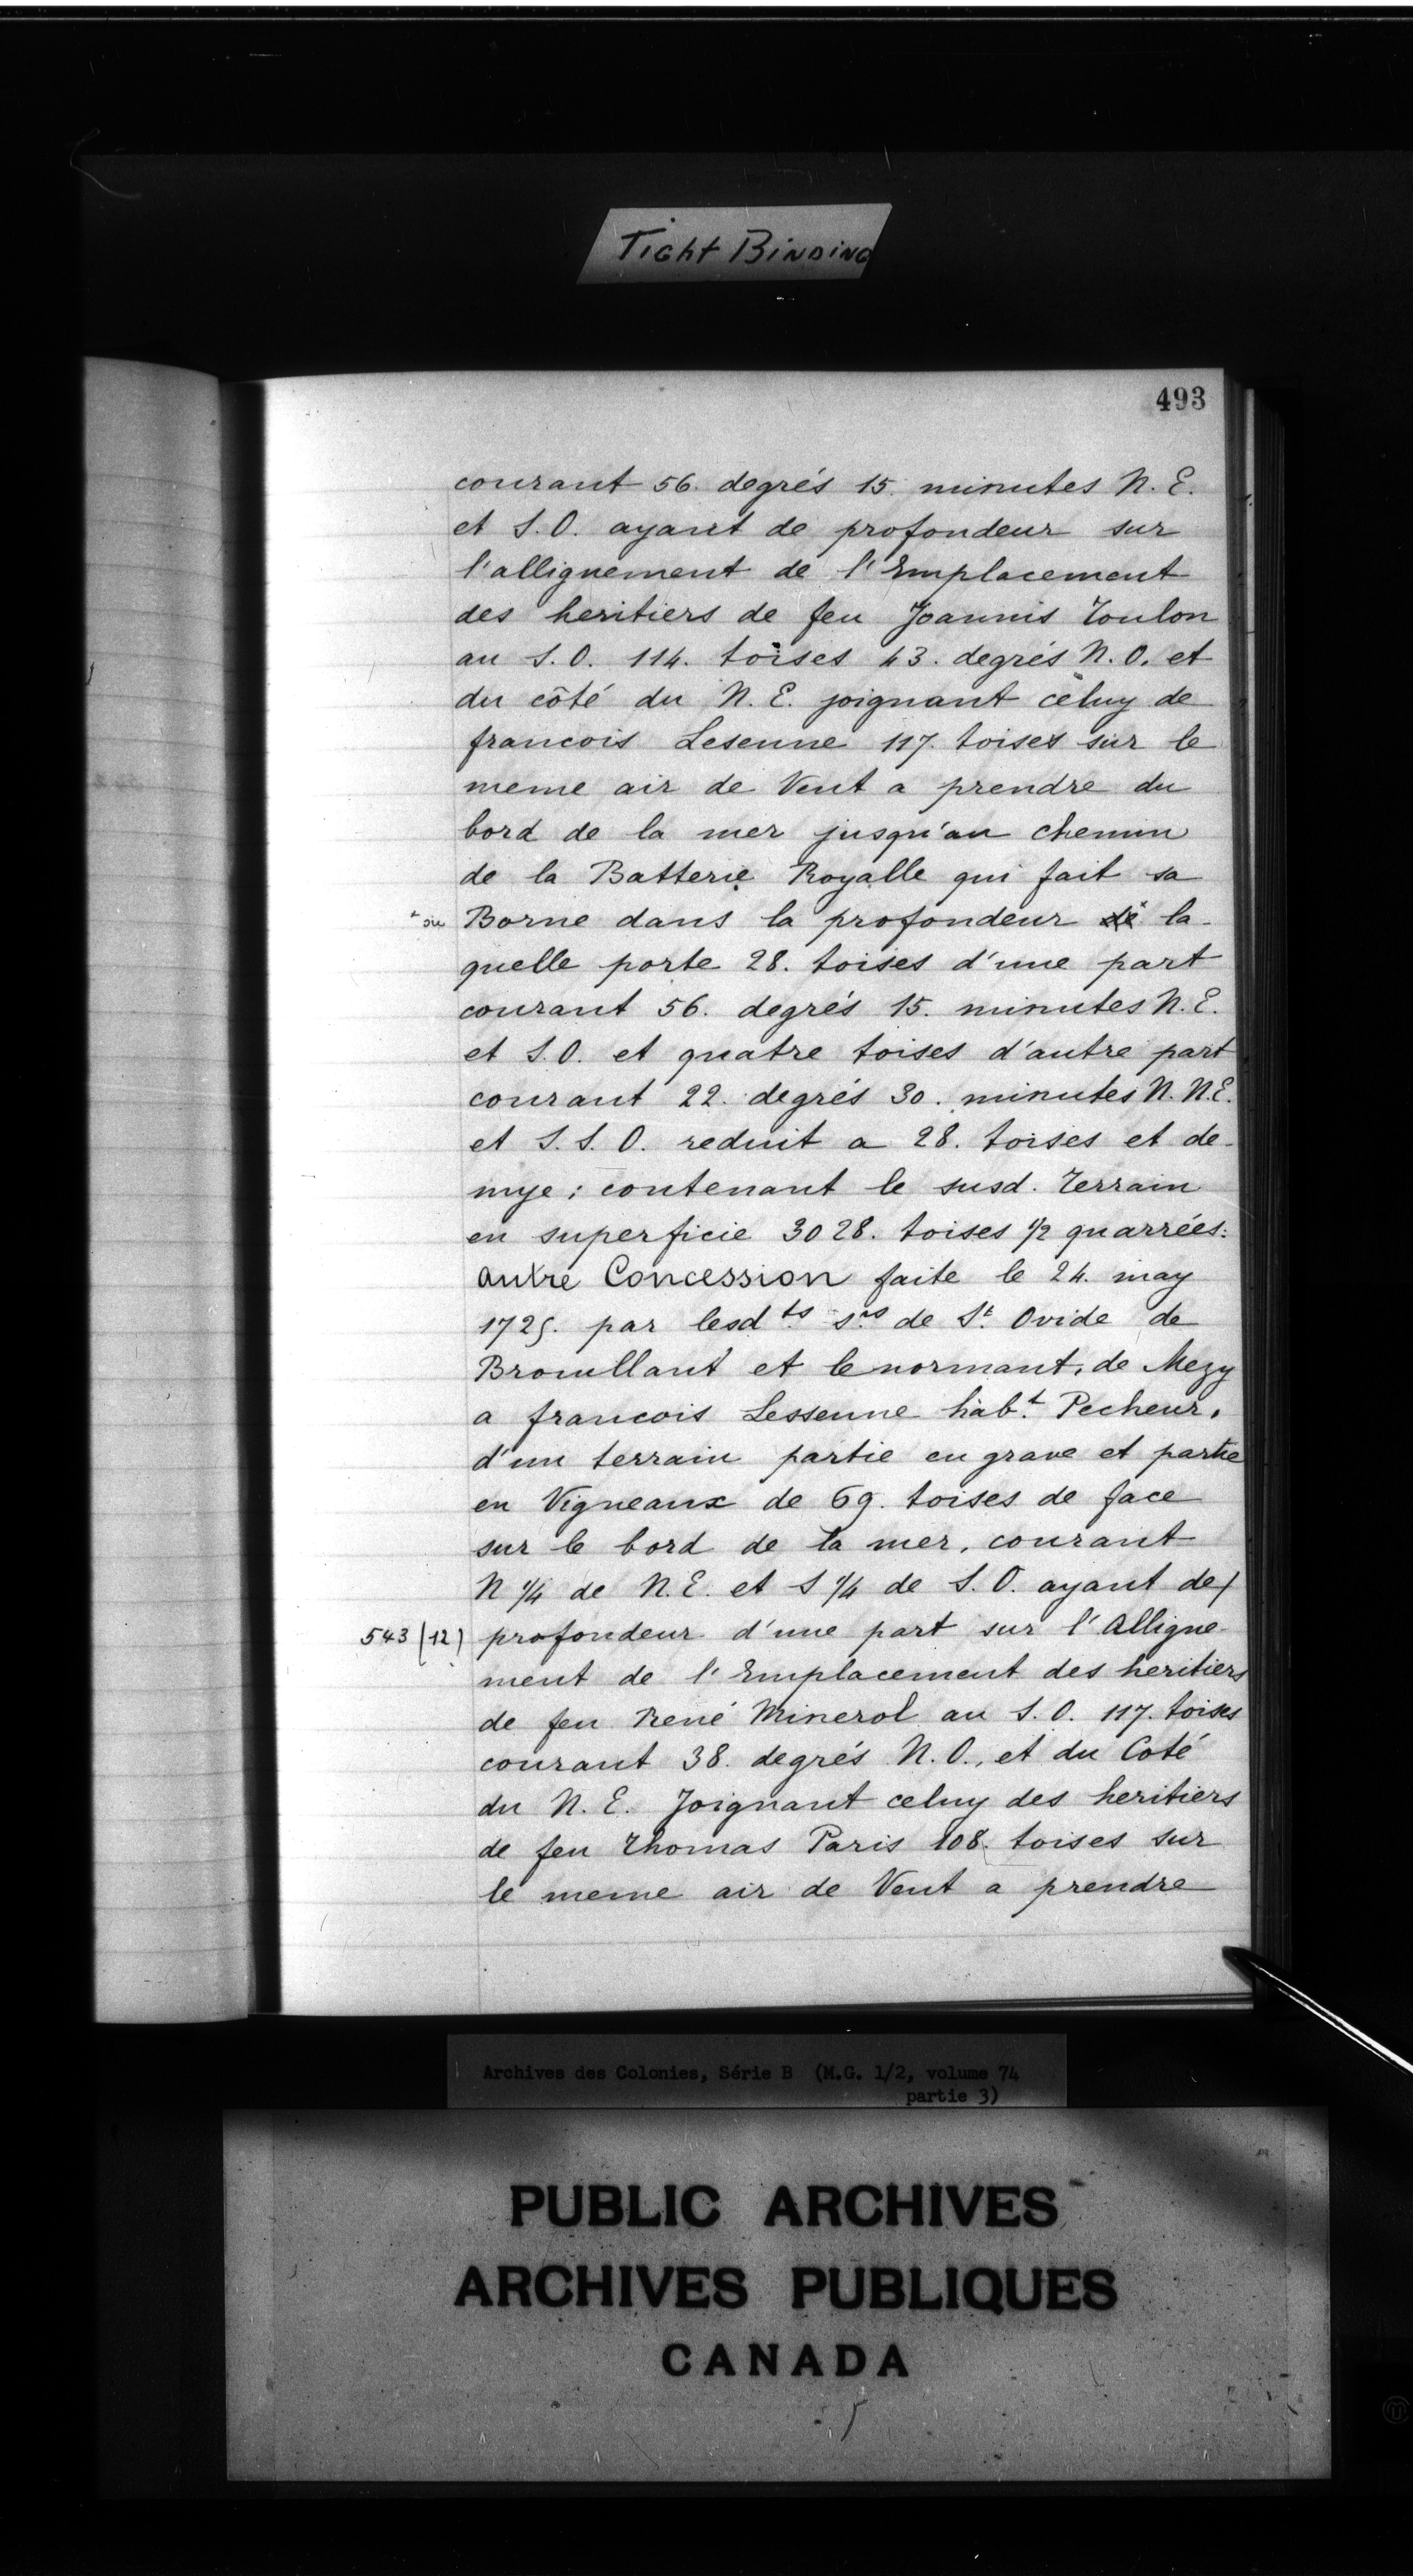 Tight Binding
493
courant 56. degrés 15. minutes N. E.
et S. O. ayant de profondeur sur
l'allignement de l'Emplacement
des heritiers de feu Joannis Toulon
au S. O. 114. toises 43. degrés N. O. et
du côté du N. E. joignant celuy de
francois Lesenne 117. toises sur le
meme air de Vent a prendre du
bord de la mer jusqu'au chemin
de la Batterie Royalle qui fait sa
Borne dans la profondeur de la-
quelle porte 28. toises d'une part
courant 56. degrés 15. minutes N. E.
et S. O. et quatre toises d'autre part
courant 22. degrés 30. minutes N. N. E.
et S. S. O. reduit a 28. toises et de-
mye; contenant le susd. Terrain
en superficie 3028. toises 1/2 quarrées:
autre Concession faite le 24. may
1725. par lesd.ts s.rs de S.t Ovide de
Brouillant et lenormant, de Mezy
a francois Lessenne hab.t Pecheur,
d'un terrain partie en grave et partie
en Vigneaux de 69. toises de face
sur le bord de la mer, courant
N 1/4 de N. E. et S 1/4 de S. O. ayant de/
543 (12) profondeur d'une part sur l'Alligne-
ment de l'Emplacement des heritiers
de feu René Minerol au S. O. 117. toises
courant 38. degrés N. O., et du Coté
du N. E. Joignant celuy des heritiers
de feu Thomas Paris 108. toises sur
le meme air de Vent a prendre
Archives des Colonies, Série B (M.G. 1/2, volume 74
partie 3)
PUBLIC ARCHIVES
ARCHIVES PUBLIQUES
CANADA